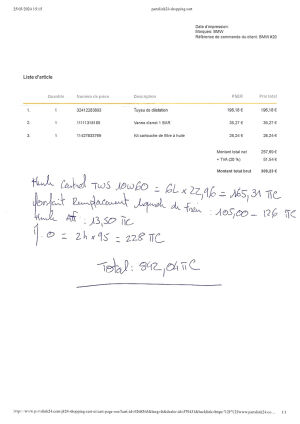 25/03/2024 15:15
partslink24-shopping-cart
Date d'impression:
Marques: BMW
Référence de commande du client: BMW X30
Liste d'article
Quantité Numéro de pièce Description PNER Prix total
1. 1 32412283893 Tuyau de dilatation 196,18 € 196,18 €
2. 1 Vanne clapet 1 BAR 35,27 € 35,27 €
3. 1 11427833769 Kit cartouche de filtre à huile 26,24 € 26,24 €
Montant total net 257,69 €
+ TVA (20 %) 51,54 €
Montant total brut 309,23 €
Huile Castrol TWS 10W60 = 6L x 22,96 = 165,31 TTC
forfait Remplacement liquide de frein : 105,00 - 126 TTC
Huile : 13,50 TTC
0 = 2h x 95 = 228 TTC
Total: 842,04 TTC
1/1